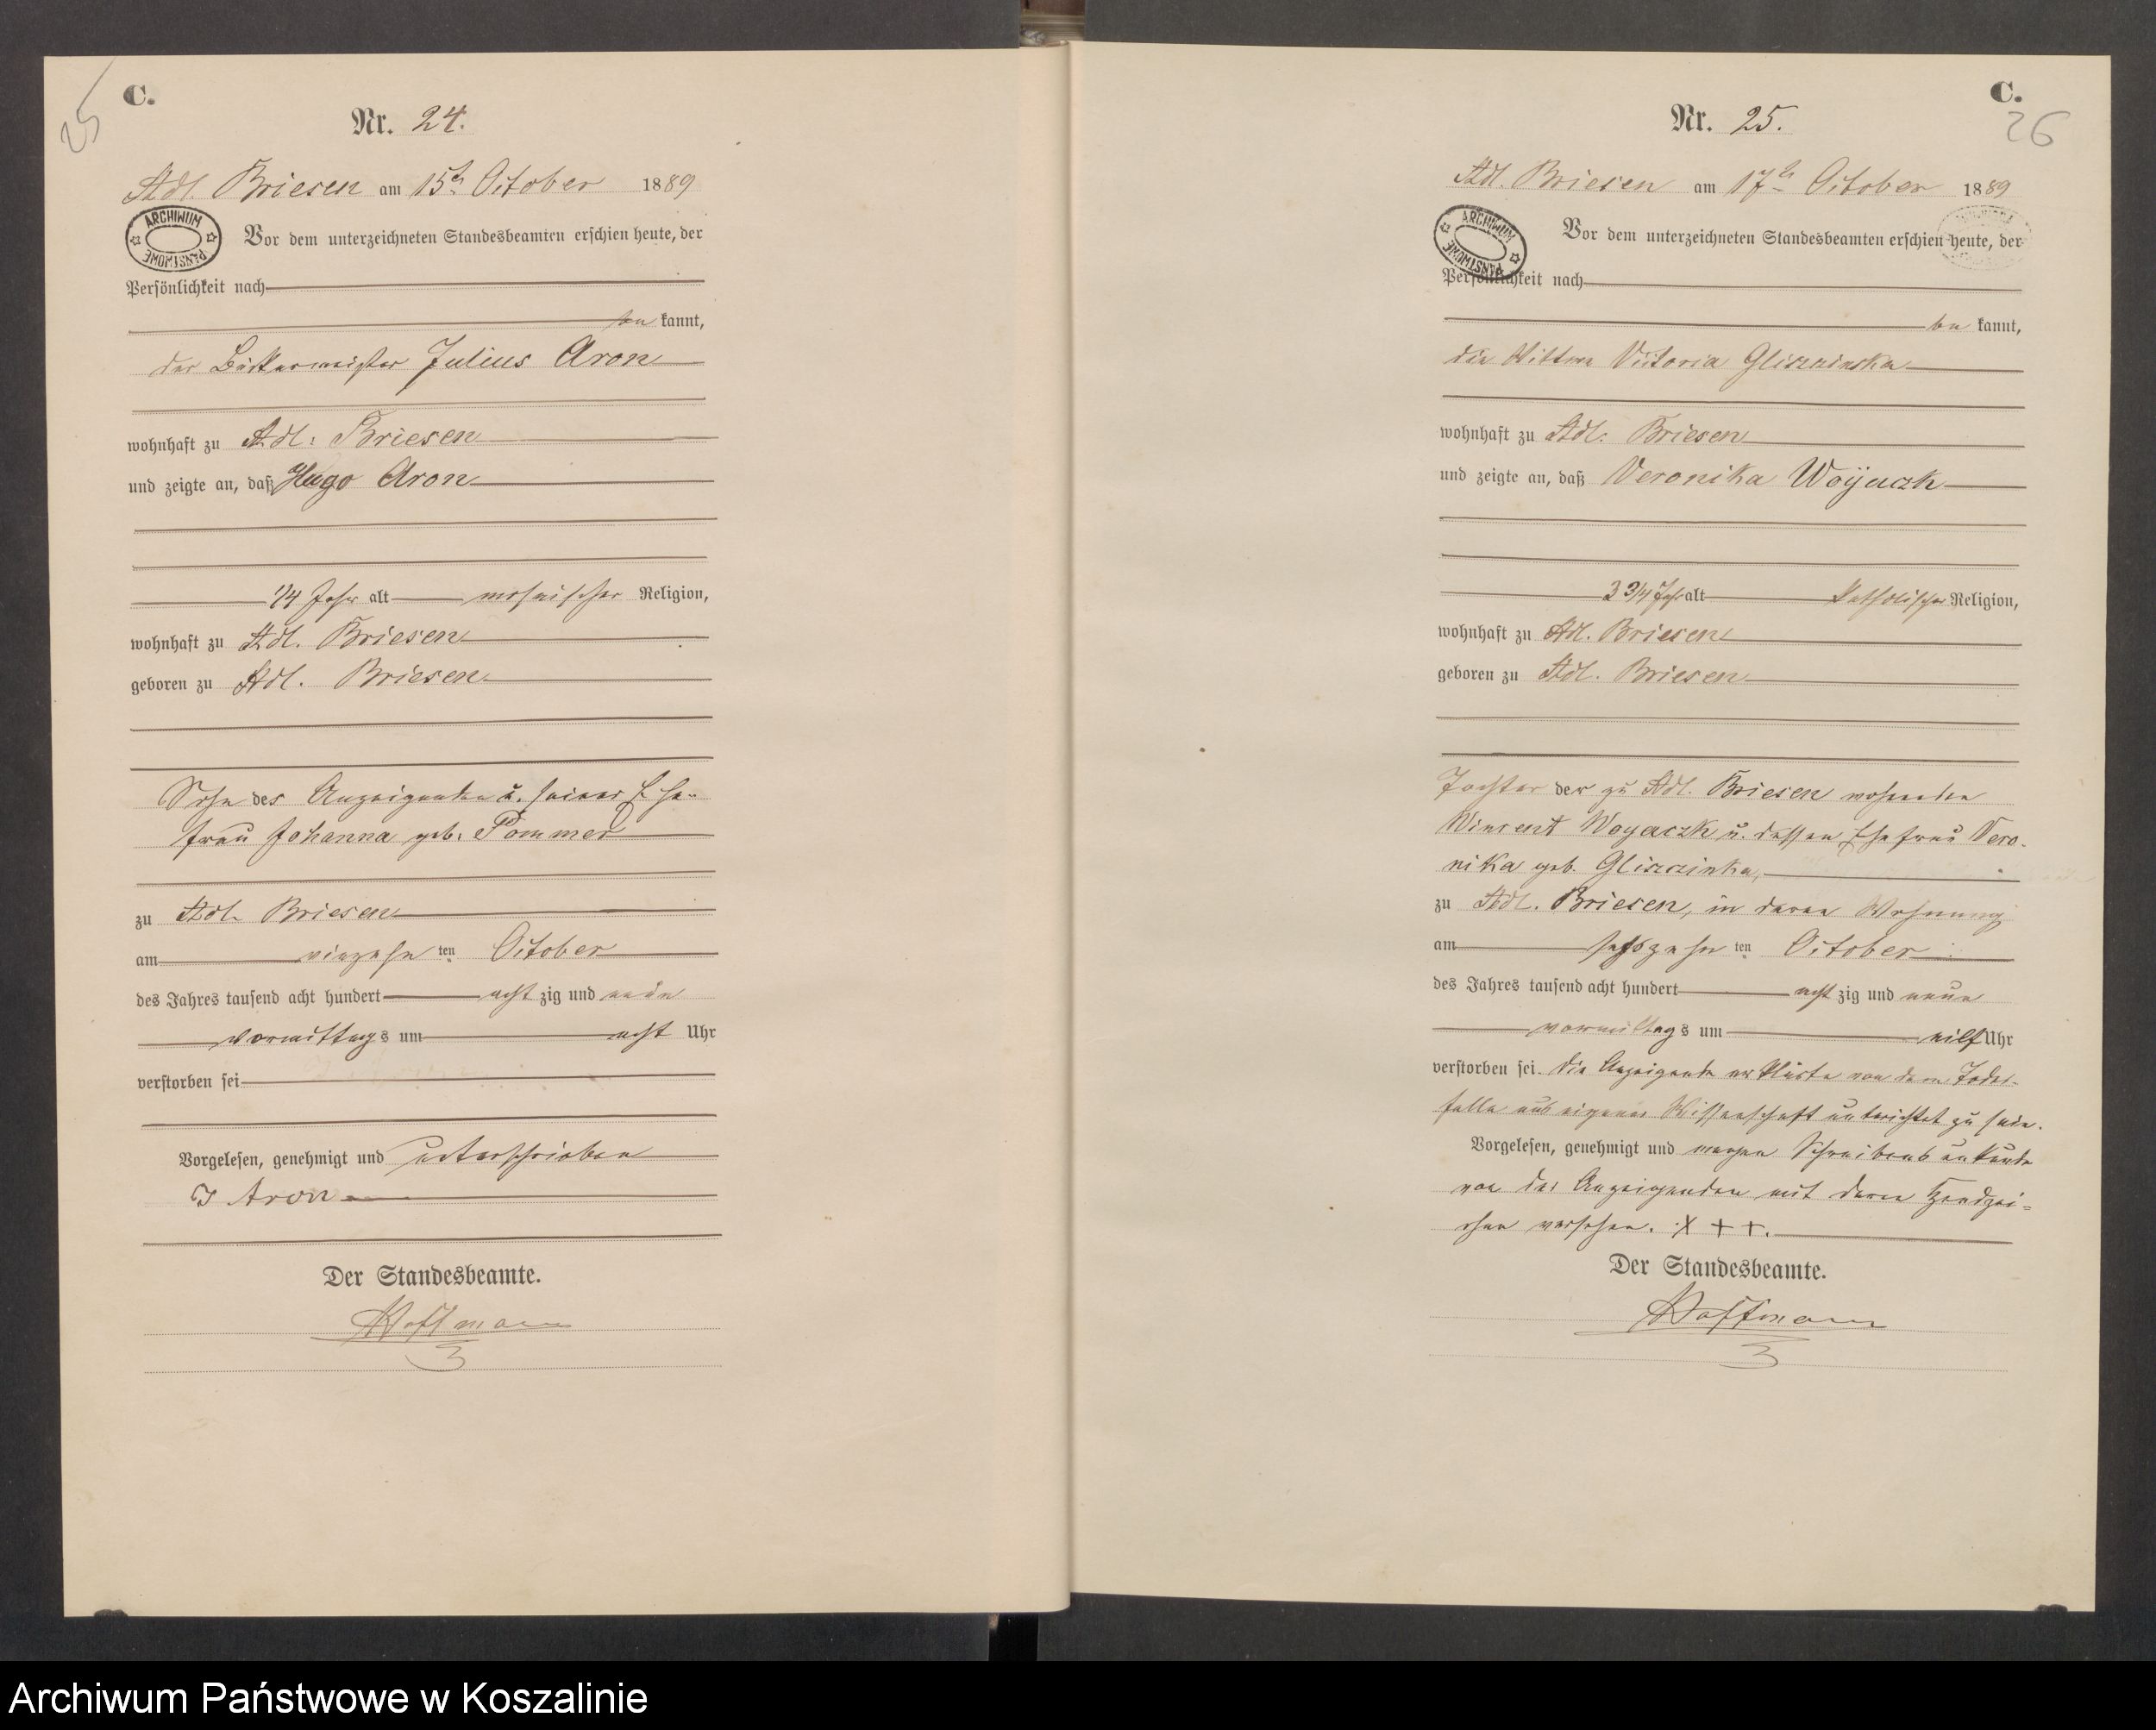 25
C.
Nr. 24.
Adl. Briesen am 15ten October 1889
ARCHIWUM PAŃSTWOWE
Vor dem unterzeichneten Standesbeamten erschien heute, der
Persönlichkeit nach
be kannt,
der Bäckermeister Julius Aron
wohnhaft zu Adl. Briesen
und zeigte an, daß Hugo Aron
Jahr alt mosaischer Religion,
wohnhaft zu Adl. Briesen
geboren zu Adl. Briesen
Sohn des Anzeigenden u. seiner Ehe-
frau Johanna geb. Pommer
zu Adl. Briesen
am vierzehn ten October
des Jahres tausend acht hundert acht zig und neun
vormittags um acht Uhr
verstorben sei
Vorgelesen, genehmigt und unterschrieben
J Aron
Der Standesbeamte.
Hoffmann
C.
26
Nr. 25.
Adl. Briesen am 17ten October 1889
ARCHIWUM PAŃSTWOWE
Vor dem unterzeichneten Standesbeamten erschien heute, der
Persönlichkeit nach
be kannt,
die Wittwe Victoria Gliszcinska
wohnhaft zu Adl. Briesen
und zeigte an, daß Veronika Woÿaczk
3 3/4 Jahr alt katholischer Religion,
wohnhaft zu Adl. Briesen
geboren zu Adl. Briesen
Tochter der zu Adl. Briesen wohnenden
Vincent Woyaczk u. dessen Ehefrau Vero-
nika geb. Gliszcinka,
zu Adl. Briesen, in deren Wohnung
am sechszehn ten October
des Jahres tausend acht hundert acht zig und neun
vormittags um elf Uhr
verstorben sei. Die Anzeigende erklärte von dem Todes-
falle aus eigener Wissenschaft unterichtet zu sein.
Vorgelesen, genehmigt und wegen Schreibensunkunde
von der Anzeigenden mit deren Handzei-
chen versehen. X + +.
Der Standesbeamte.
Hoffmann
Archiwum Państwowe w Koszalinie